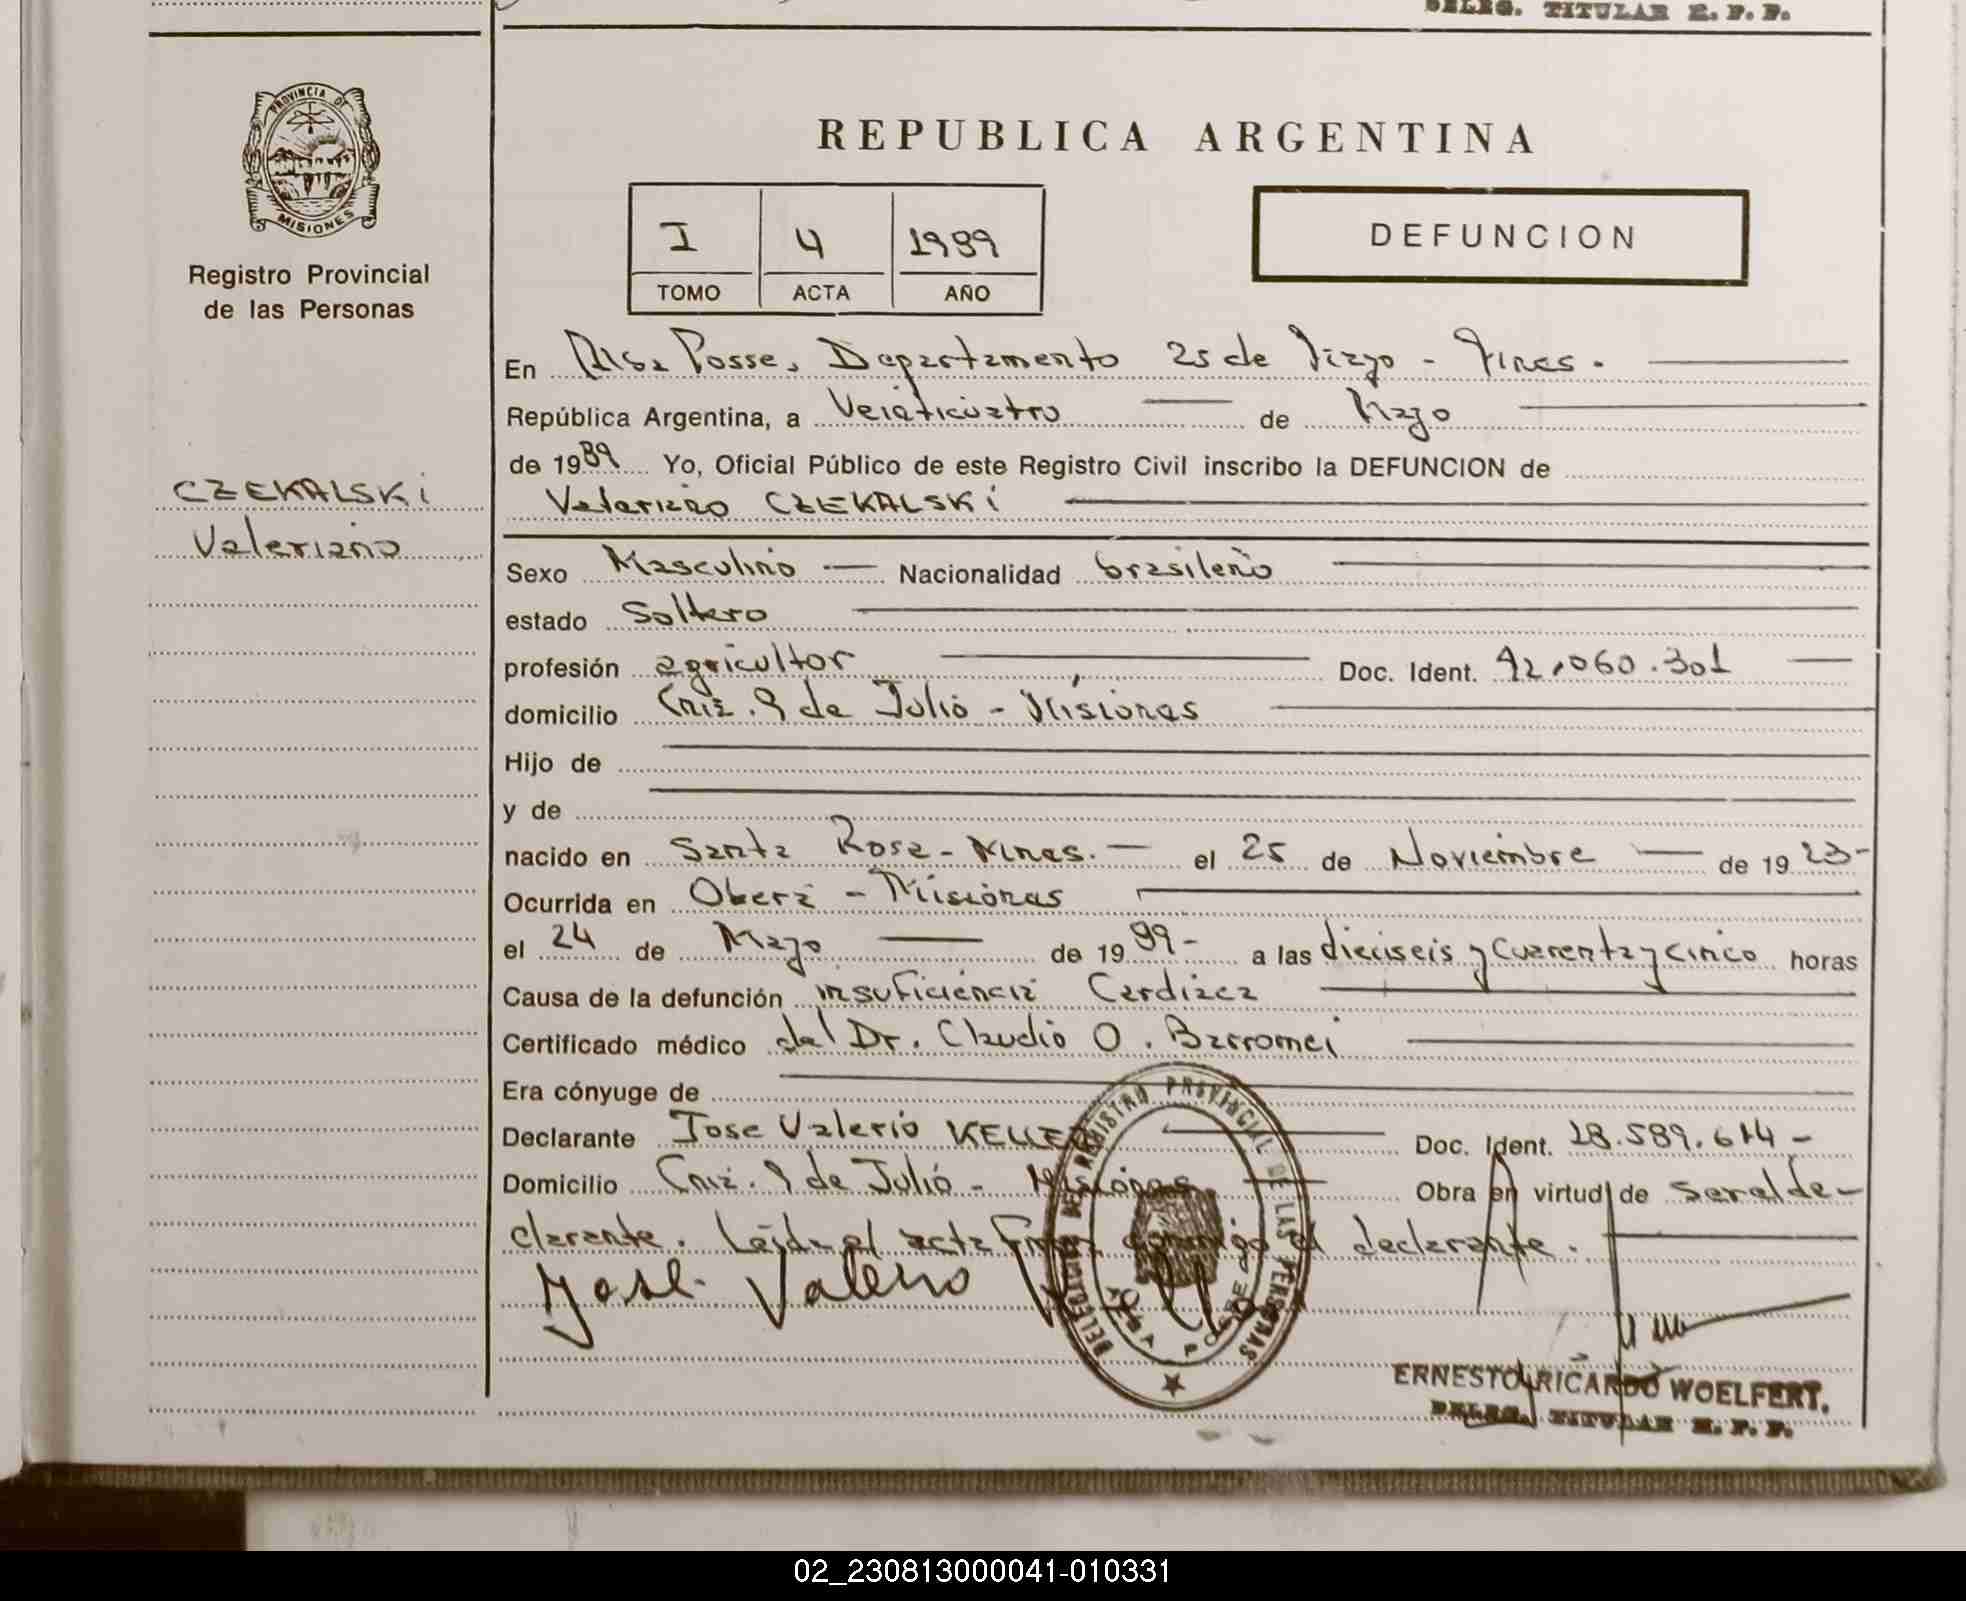 DELEG. TITULAR R. P. P.
PROVINCIA DE
MISIONES
Registro Provincial
de las Personas
CZEKALSKi
Valeriano
REPUBLICA ARGENTINA
I 4 1989
TOMO ACTA AÑO
DEFUNCION
En Alba Posse, Departamento 25 de Mayo - Mnes.
República Argentina, a Veinticuatro de Mayo
de 1989 Yo, Oficial Público de este Registro Civil inscribo la DEFUNCION de
Valeriano CZEKALSKi
Sexo Masculino Nacionalidad brasileño
estado Soltero
profesión agricultor Doc. Ident. 92.060.301
domicilio Cnia. 9 de Julio - Misiones
Hijo de
y de
nacido en Santa Rosa - Mnes. el 25 de Noviembre de 1923-
Ocurrida en Oberá - Misiones
el 24 de Mayo de 1989- a las dieciseis y cuarenta y cinco horas
Causa de la defunción insuficiencia Cardiaca
Certificado médico del Dr. Claudio O. Barromei
Era cónyuge de
Declarante Jose Valerio KELLER Doc. Ident. 18.589.614-
Domicilio Cnia. 9 de Julio - Misiones Obra en virtud de ser el de-
clarante. Leida el acta firma conmigo el declarante.
Jose Valerio
DELEGACION DEL REGISTRO PROVINCIAL DE LAS PERSONAS
ALBA POSSE
ERNESTO RICARDO WOELFERT.
DELEG. TITULAR R. P. P.
02_230813000041-010331